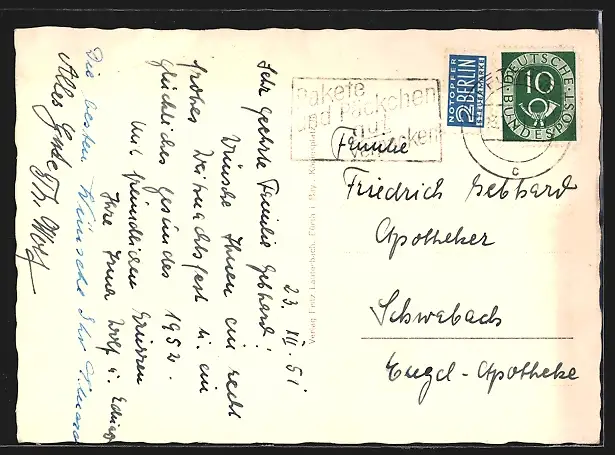 23. XII. 51
Sehr geehrte Familie Gebhard!
Wünsche Ihnen ein recht
frohes Weihnachtsfest u. ein
glückliches gesundes 1952.
Mit freundlichen Grüssen
Ihre Irma Wolf u.
Die besten Wünsche Ihr
Alles Gute Th. Wolf
Pakete
und Päckchen
gut
verpacken
NOTOPFER
2 BERLIN
STEUERMARKE
DEUTSCHE
BUNDESPOST
10
c
Familie
Friedrich Gebhard
Apotheker
Schwabach
Engel-Apotheke
Verlag Fritz Lauterbach, Fürth i. Bay.